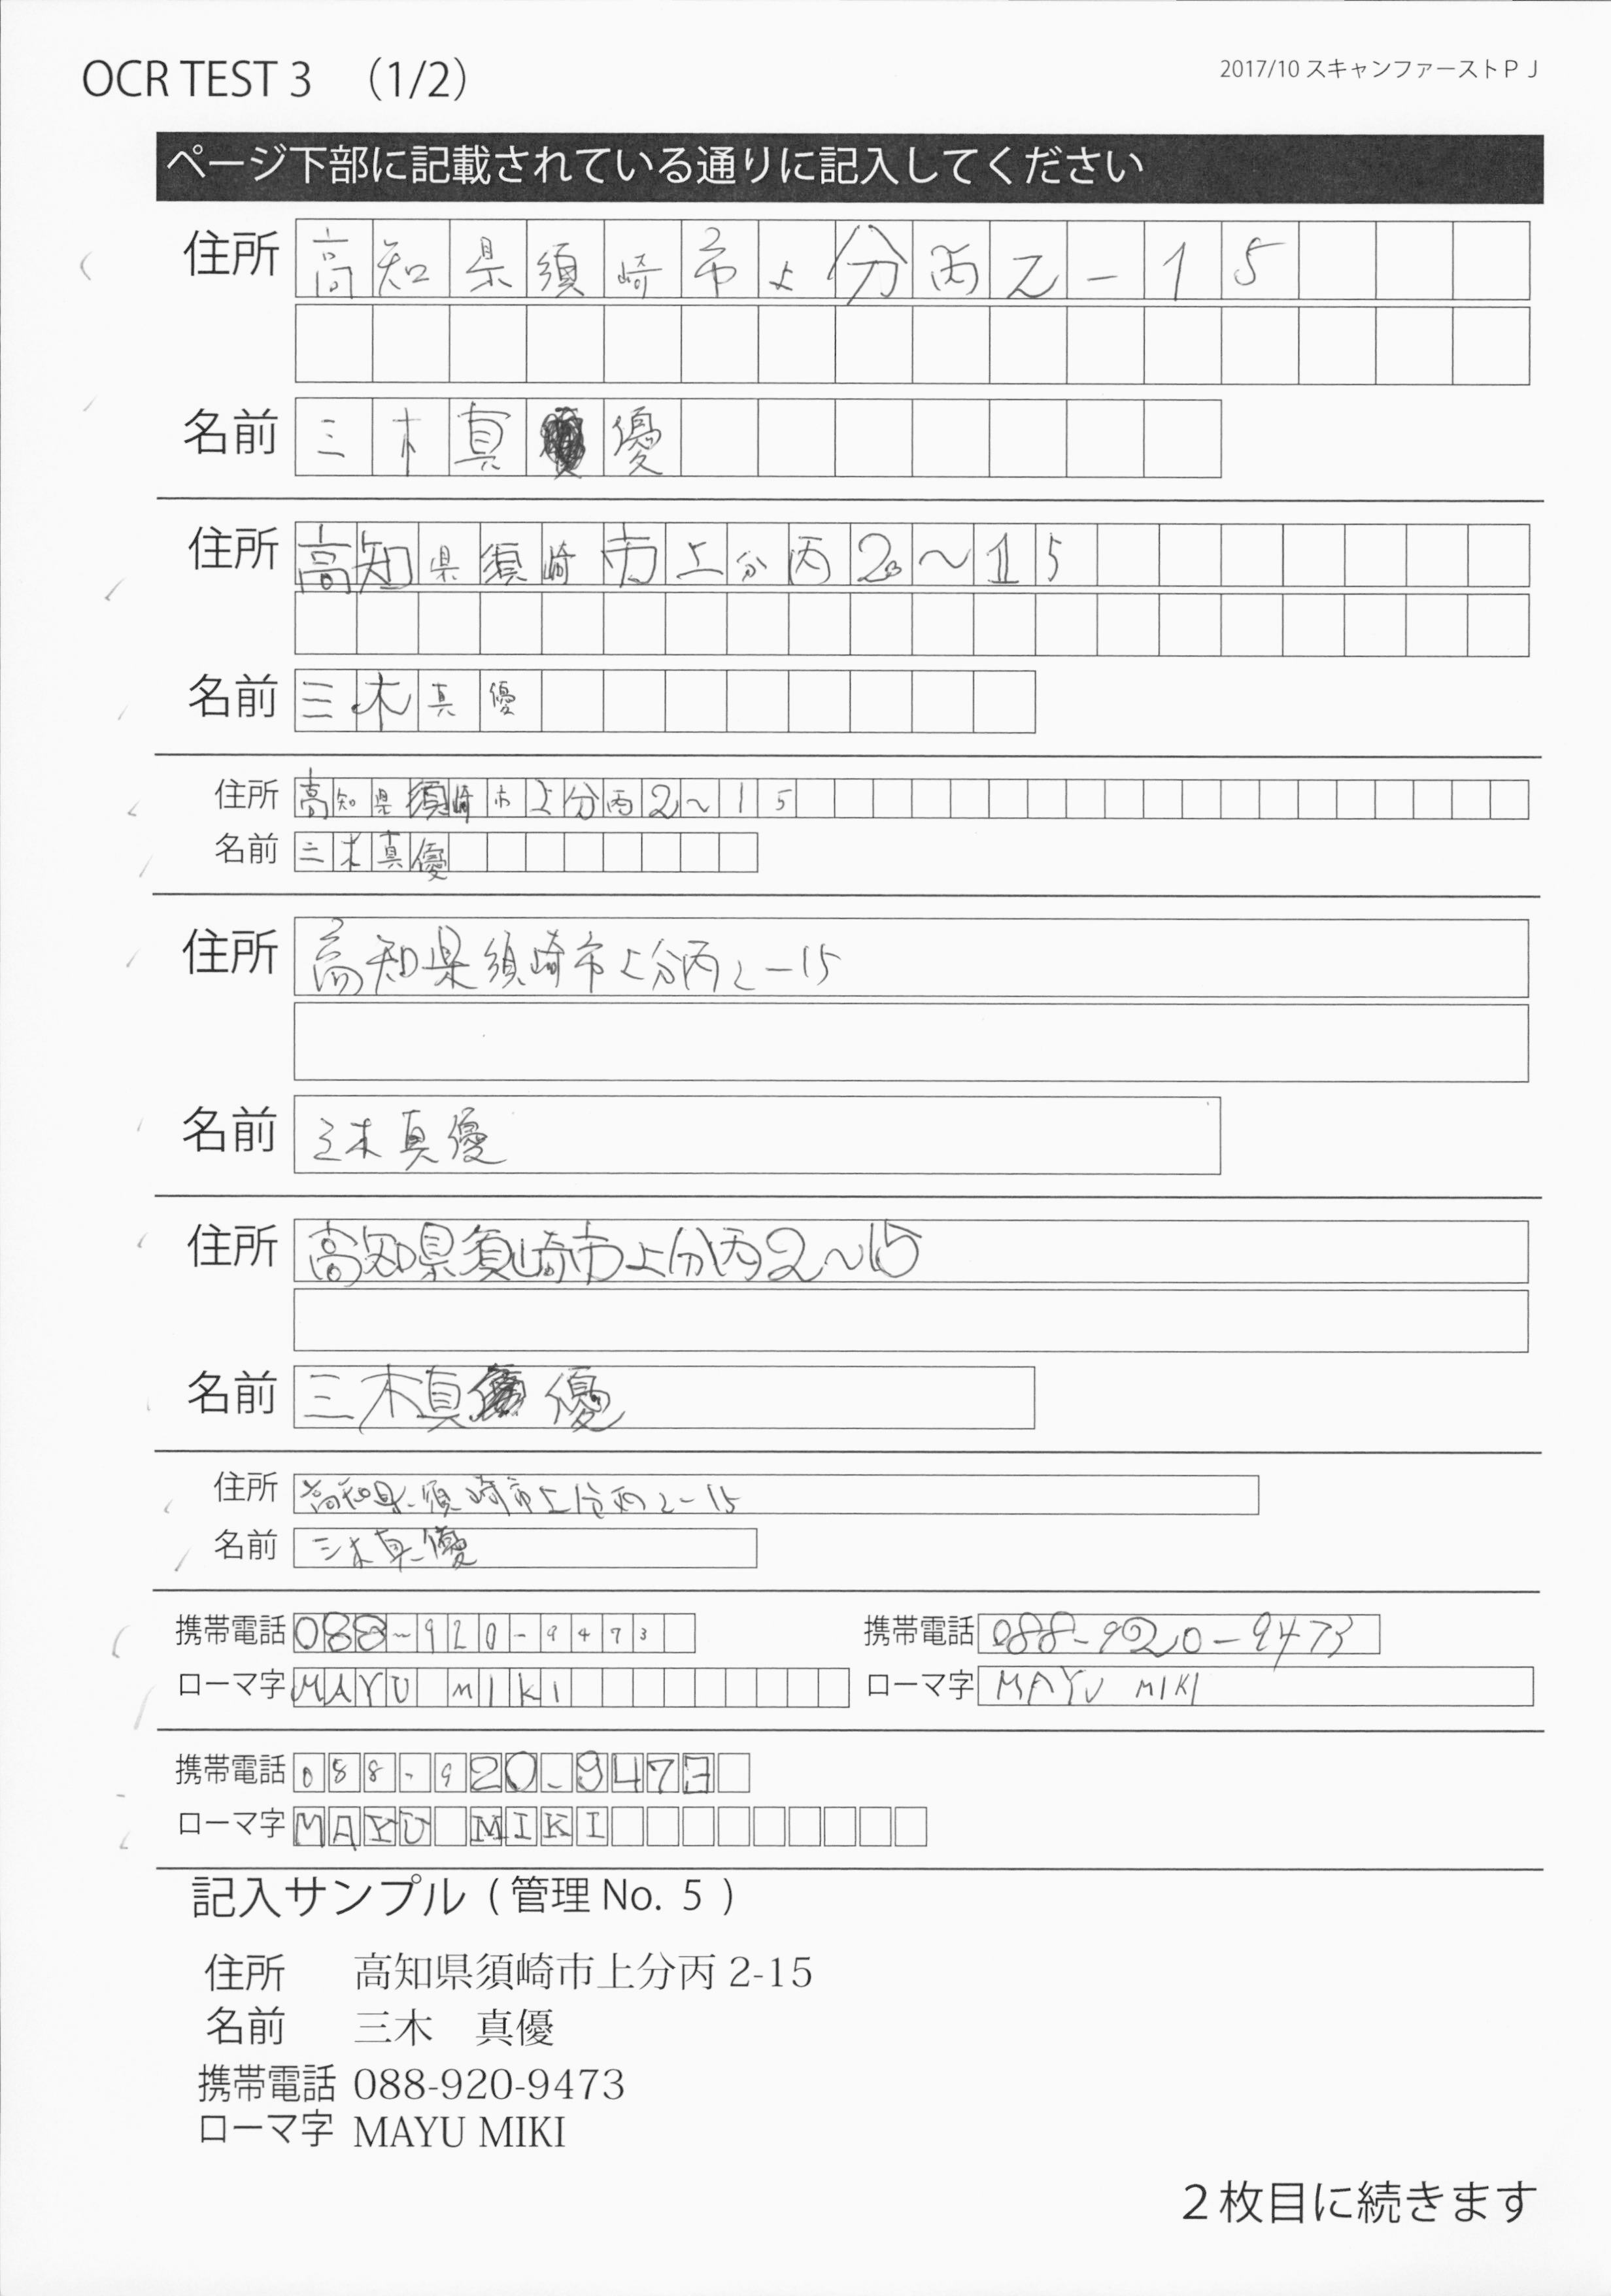 OCR TEST 3 （1/2）
2017/10 スキャンファーストＰＪ
ページ下部に記載されている通りに記入してください
住所 高知県須崎市上分丙2-15
名前 三木真優
住所 高知県須崎市上分丙2~15
名前 三木真優
住所 高知県須崎市上分丙2~15
名前 三木真優
住所 高知県須崎市上分丙2-15
名前 三木真優
住所 高知県須崎市上分丙2~15
名前 三木真優
住所 高知県須崎市上分丙2-15
名前 三木真優
携帯電話 088-920-9473 携帯電話 088-920-9473
ローマ字 MAYU MIKI ローマ字 MAYU MIKI
携帯電話 088-920-9473
ローマ字 MAYU MIKI
記入サンプル ( 管理 No. 5 )
住所 高知県須崎市上分丙 2-15
名前 三木　真優
携帯電話 088-920-9473
ローマ字 MAYU MIKI
２枚目に続きます